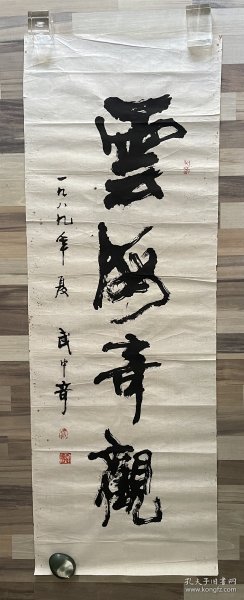 雲海奇觀
一九八九年夏 武中奇
孔夫子旧书网
www.kongfz.com